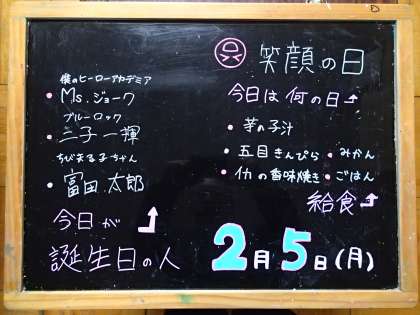 僕のヒーローアカデミア
・Ms.ジョーク
ブルーロック
・二子一揮
ちびまる子ちゃん
・富田太郎
今日が
誕生日の人
笑顔の日
今日は何の日
・芋の子汁
・五目きんぴら ・みかん
・イカの香味焼き ・ごはん
給食
2月5日(月)